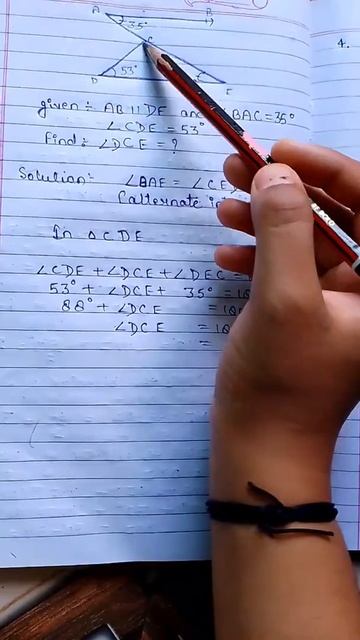 A B
35°
C
D 53° E
4.
given:- AB || DE and ∠BAC = 35°
∠CDE = 53°
Find:- ∠DCE = ?
Solution:- ∠BAE = ∠CED
(alternate
In △ CDE
∠CDE + ∠DCE + ∠DEC =
53° + ∠DCE + 35° =
88° + ∠DCE =
∠DCE =
=